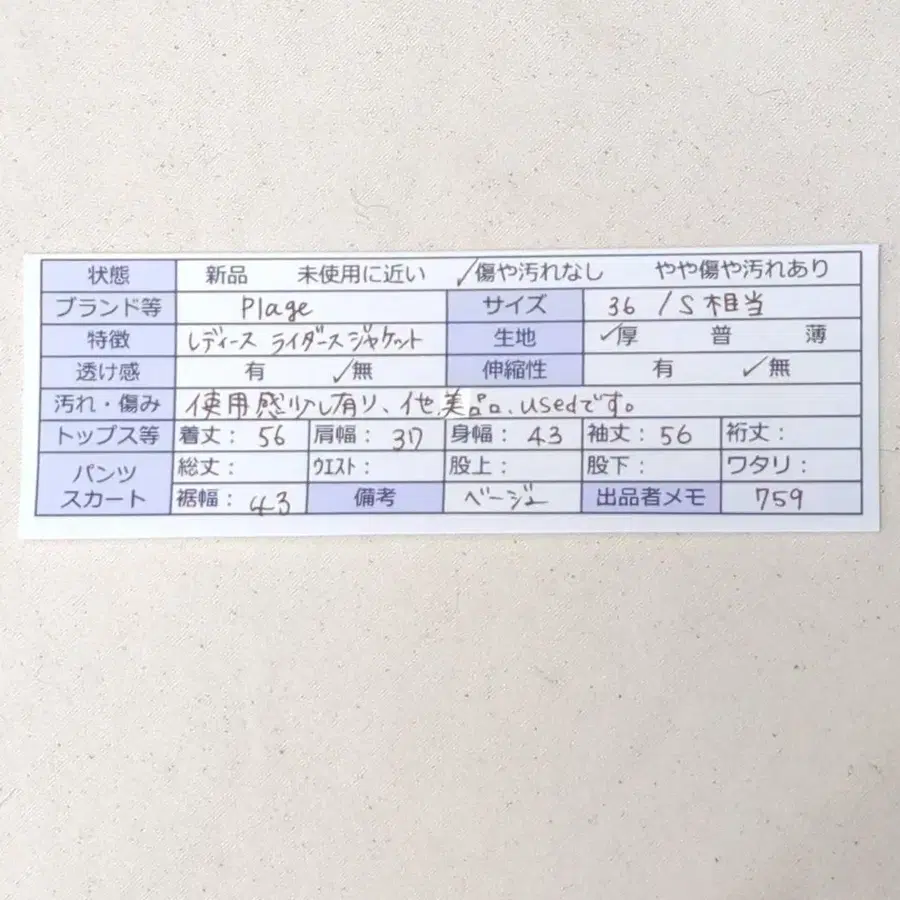 状態 新品 未使用に近い ✓傷や汚れなし やや傷や汚れあり
ブランド等 Plage サイズ 36 /S相当
特徴 レディース ライダースジャケット 生地 ✓厚 普 薄
透け感 有 ✓無 伸縮性 有 ✓無
汚れ・傷み 使用感少し有り、他美品、usedです。
トップス等 着丈: 56 肩幅: 37 身幅: 43 袖丈: 56 裄丈:
パンツ スカート 総丈: ウエスト: 股上: 股下: ワタリ:
裾幅: 43 備考 ベージュ 出品者メモ 759